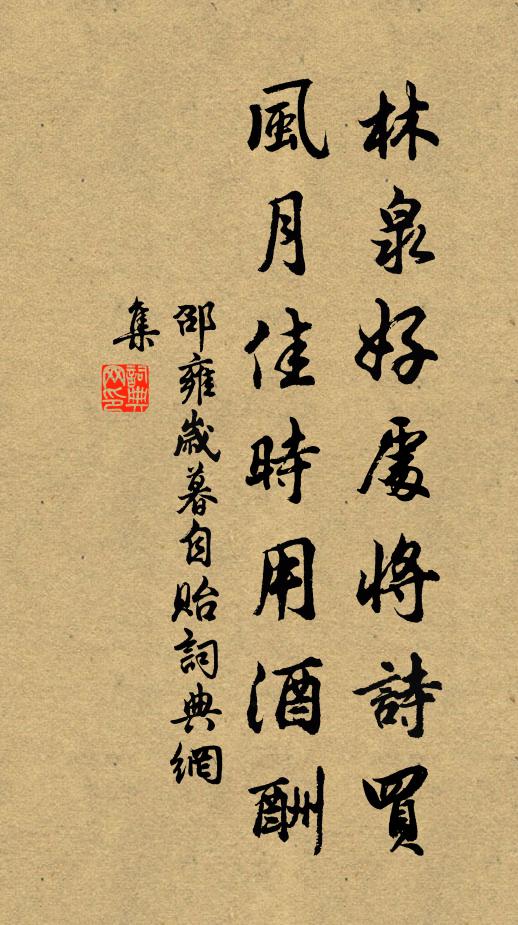 林泉好處將詩買
風月佳時用酒酬
邵雍歲暮自貽詞典網
集
詞典
网印